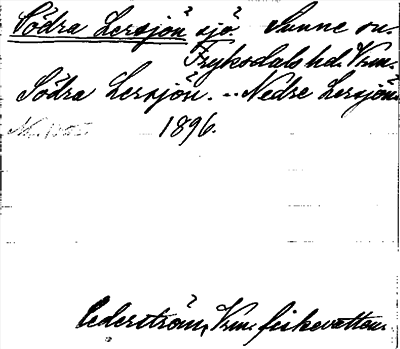 Södra Lersjön sjö. Sunne sn.
Fryksdals hd. Vrm.
Södra Lersjön. -- Nedre Lersjön
1896.
Cederström, Vrm. fiskevatten.